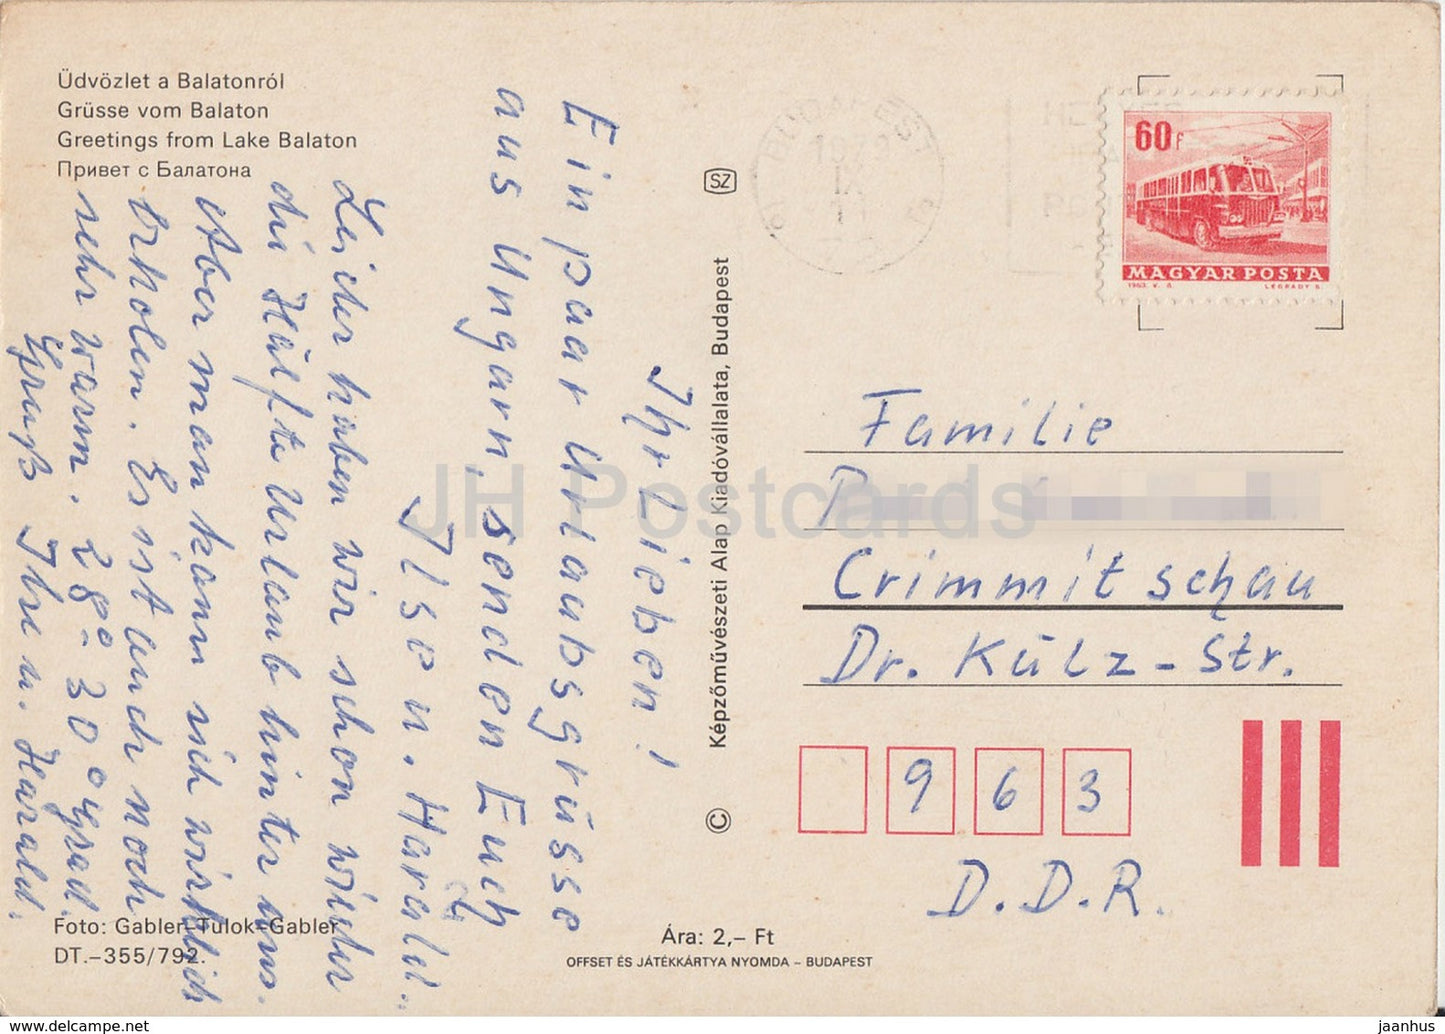 Üdvözlet a Balatonról
Grüsse vom Balaton
Greetings from Lake Balaton
Привет с Балатона
Ihr Lieben!
Ein paar Urlaubsgrüsse
aus Ungarn, senden Euch
Ilse u. Harald.
Leider haben wir schon wieder
die Hälfte Urlaub hinter uns.
Aber man kann sich wirklich
erholen. Es ist auch noch
sehr warm. 28°-30° grad.
Gruß Ilse u. Harald.
Foto: Gabler–Tulok–Gabler
DT.–355/792.
SZ
© Képzőművészeti Alap Kiadóvállalata, Budapest
Ára: 2,– Ft
OFFSET ÉS JÁTÉKKÁRTYA NYOMDA – BUDAPEST
BUDAPEST
IX
11
60f
MAGYAR POSTA
1963. V. 8.
LÉGRÁDY S.
Familie
P
Crimmitschau
Dr. Külz-Str.
963
D.D.R.
JH Postcards
www.delcampe.net
jaanhus